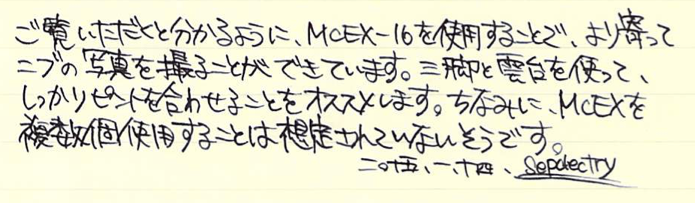 ご覧いただくと分かるように、MCEX-16を使用することで、より寄って
ニブの写真を撮ることができています。三脚と雲台を使って、
しっかりピントを合わせることをオススメします。ちなみに、MCEXを
複数個使用することは想定されていないそうです。
二〇十五、一、十四、Sepctectry